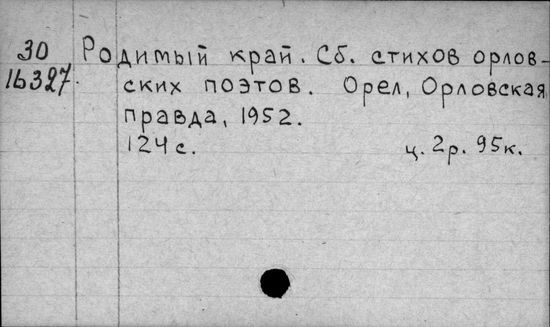 30
16327
Родимый край. Сб. стихов орлов-
ских поэтов. Орел, Орловская
правда, 1952.
124 с. ц. 2р. 95к.